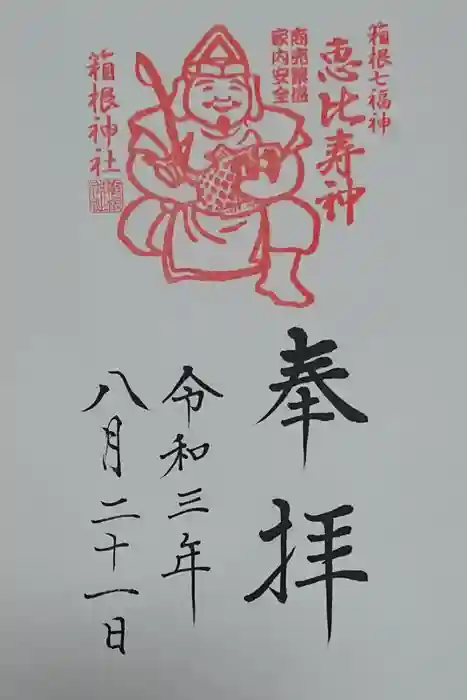 箱根七福神
恵比寿神
商売繁盛
家内安全
箱根神社
奉拝
令和三年
八月二十一日